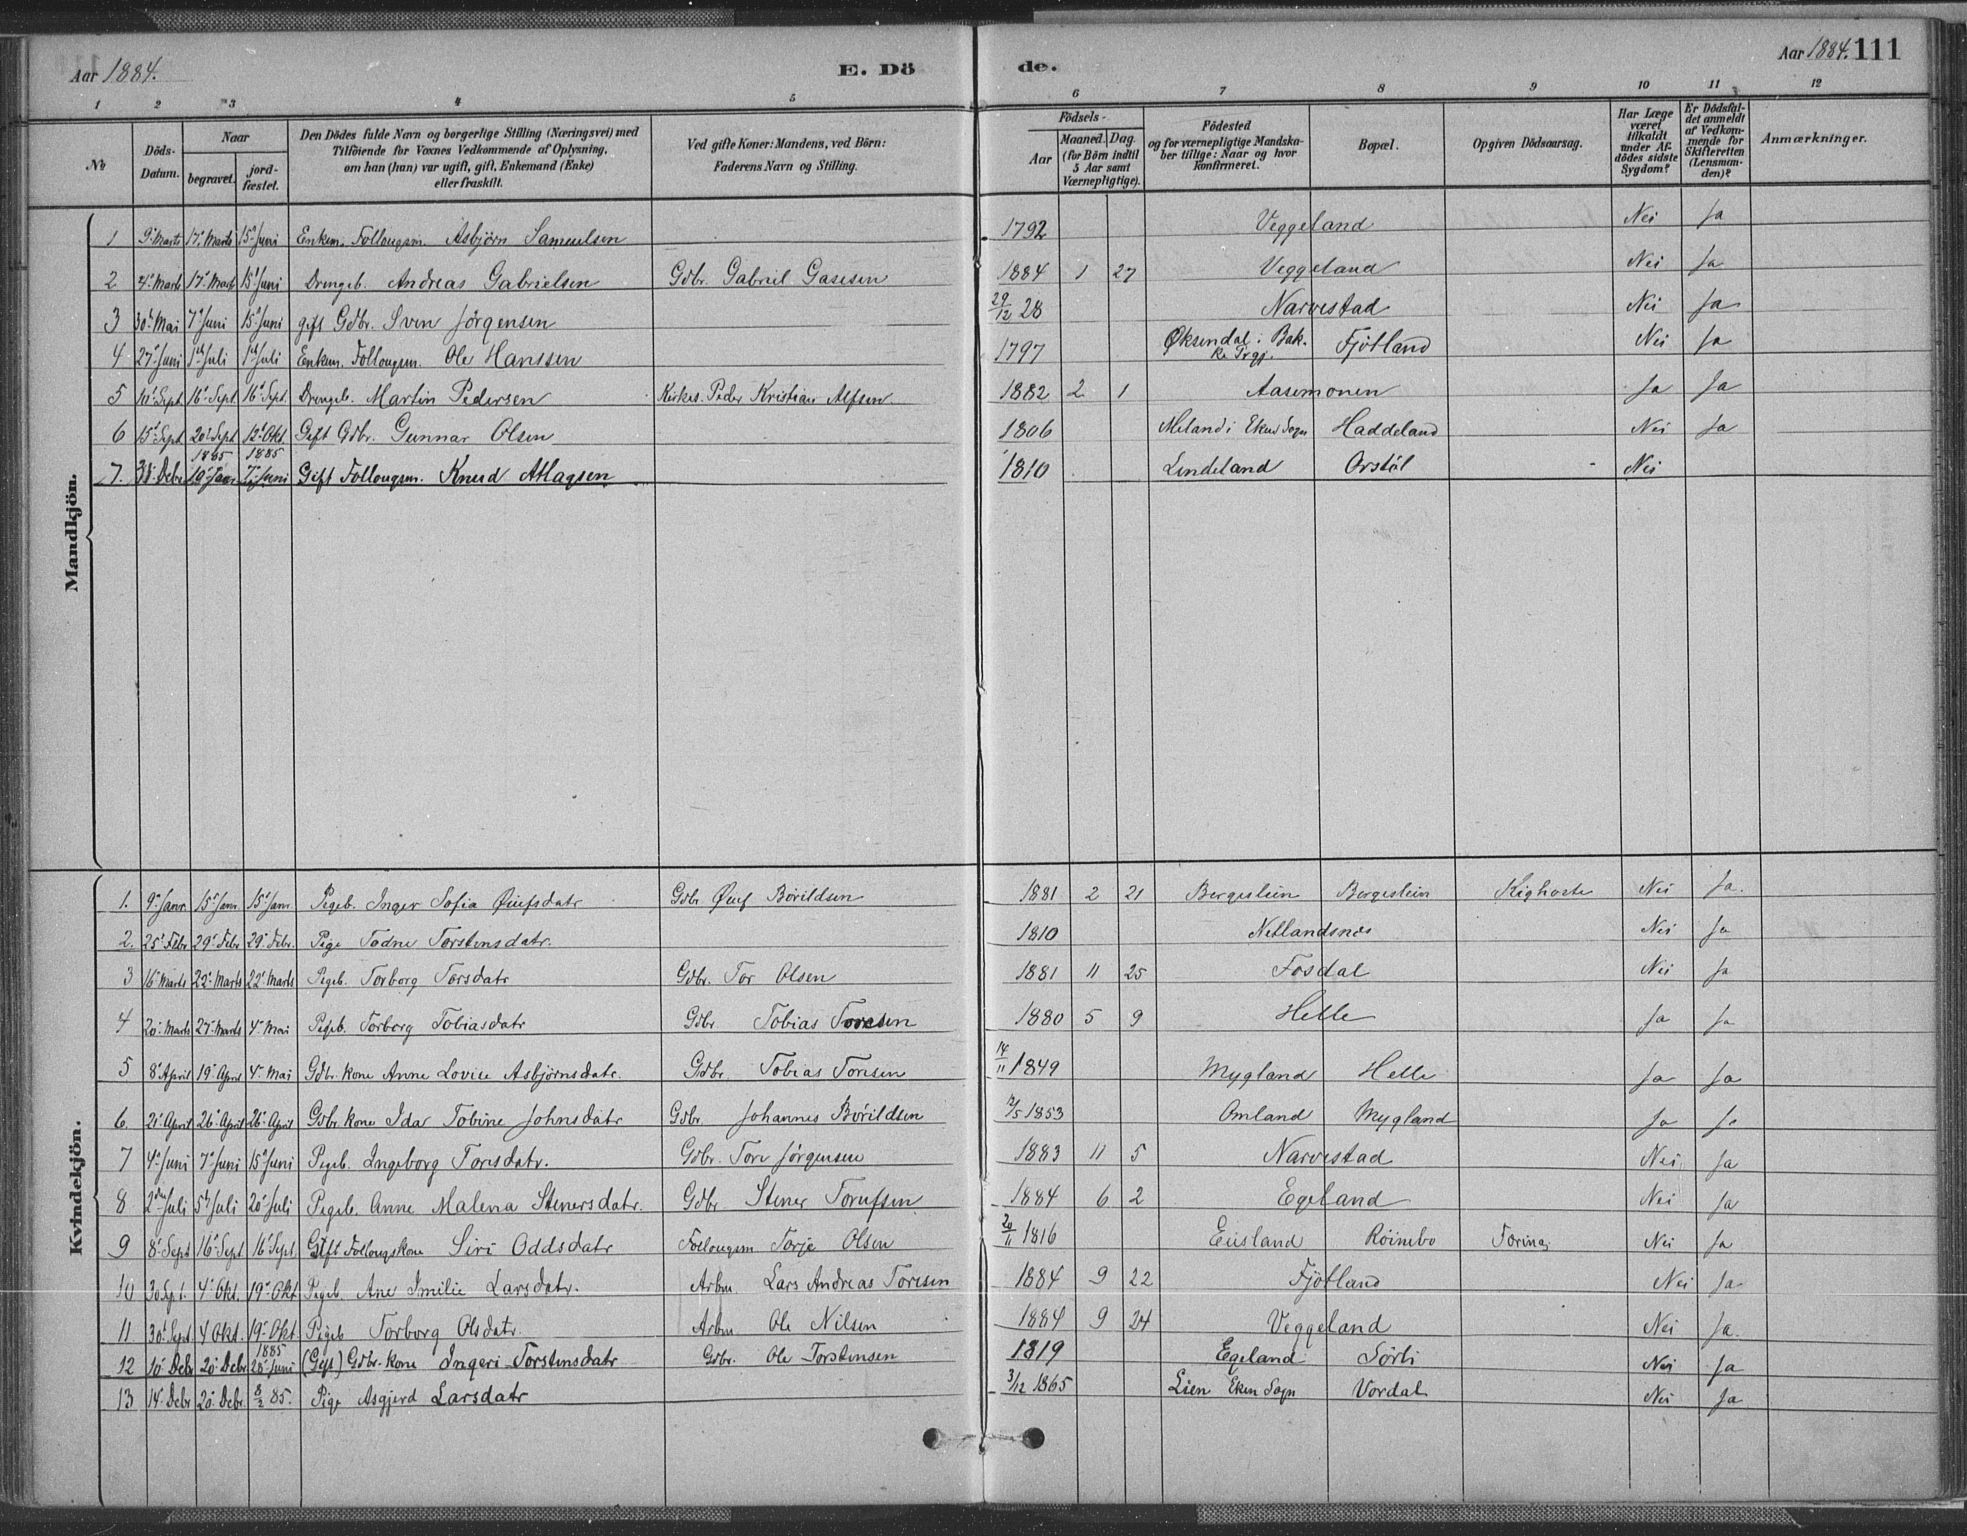 Aar 1884. E. Dö
de. Aar 1884. 111
1 2 3 4 5 6 7 8 9 10 11 12
No
Döds-Datum.
Naar
begravet.
jordfæstet.
Den Dödes fulde Navn og borgerlige Stilling (Næringsvei) med
Tilföiende for Voxnes Vedkommende af Oplysning,
om han (hun) var ugift, gift, Enkemand (Enke)
eller fraskilt.
Ved gifte Koner: Mandens, ved Börn:
Faderens Navn og Stilling.
Födsels-
Aar
Maaned. Dag.
(for Börn indtil
5 Aar samt
Værnepligtige).
Födested
og for værnepligtige Mandska-
ber tillige: Naar og hvor
konfirmeret.
Bopæl.
Opgiven Dödsaarsag.
Har Læge
været
tilkaldt
under Af-
dödes sidste
Sygdom?
Er Dödsfal-
det anmeldt
af Vedkom-
mende for
Skifteretten
(Lensman-
den)?
Anmærkninger.
Mandkjön.
1 9. Marts 17. Marts 15. Juni Enkem. Follougsm. Asbjörn Samuelsen 1792 Veggeland Nei Ja
2 4. Marts 17. Marts 15. Juni Drengeb. Andreas Gabrielsen Gdbr. Gabriel Gasesen 1884 1 27 Veggeland Nei Ja
3 30. Mai 7. Juni 15. Juni gift Gdbr. Sven Jörgensen 29/12 28 Narvestad Nei Ja
4 27. Juni 1ste Juli 1ste Juli Enkem. Follougsm. Ole Hanssen 1797 Øksendal i Bak-
ke Prgj. Fjötland Nei Ja
5 10. Sept. 16. Sept. 16. Sept. Drengeb. Martin Pedersen Kirkes. Peder Kristian Alfsen 1882 2 1 Aasemonen Ja Ja
6 15. Sept. 20. Sept. 12. Okt. Gift Gdbr. Gunnar Olsen 1806 Meland i Ekens Sogn Haddeland Nei Ja
1885 1885
7. 31. Debr. 19. Janr. 7. Juni Gift Follougsm. Knud Atlagsen 1810 Lindeland Orstöl Nei
Kvindekjön.
1. 9. Janr. 15. Janr. 15. Janr. Pigeb. Inger Sofia Øiufsdatr Gdbr Øiuf Börildsen 1881 2 21 Bergeslein Bergeslein Kighoste Nei Ja.
2. 25. Febr. 29. Febr. 29. Febr. Pige Todne Torstensdatr. 1810 Netlandsnes Nei Ja
3 16. Marts 22. Marts 22. Marts Pigeb. Torborg Torsdatr Gdbr. Tor Olsen 1881 11 25 Fosdal Nei Ja
4 20. Marts 27. Marts 4. Mai Pigeb. Torborg Tobiasdatr Gdbr Tobias Toresen 1880 5 9 Helle Ja Ja
5 8. April 19. April 4. Mai Gdbr. kone Anne Lovise Asbjörnsdatr. Gdbr. Tobias Toresen 14/11 1849 Mygland Helle Ja Ja
6. 21. April 26. April 26. April Gdbr. kone Ida Tobine Johnsdatr Gdbr. Johannes Börildsen 12/5 1853 Omland Mygland Ja Ja
7 4. Juni 7. Juni 15. Juni Pigeb. Ingeborg Toresdatr. Gdbr. Tore Jörgensen 1883 11 5 Narvestad Nei Ja
8 2den Juli 5te Juli 20. Juli Pigeb. Anne Malena Stenersdatr. Gdbr Stener Torufsen 1884 6 2 Egeland Nei Ja
9 8. Sept. 16. Sept. 16. Sept. Gift Follougskone Siri Oddsdatr Follougsm Torje Olsen 20/11 1816 Eiesland Röinebo Nei Ja
10 30 Sept. 4. Okt. 19. Okt. Pigeb. Ane Imilie Larsdatr. Arbm. Lars Andreas Toresen 1884 9 22 Fjötland Nei Ja
11 30. Sept. 4 Okt. 19. Okt. Pigeb Torborg Olsdatr. Arbm. Ole Nilsen 1884 9 24 Veggeland Nei Ja.
1885
12 10. Debr. 20. Debr. 28. Juni (Gift) Gdbr. kone Ingeri Torstensdatr Gdbr. Ole Torstensen 1819 Egeland Sörli Nei Ja
13 14. Debr. 20. Debr. 8/2 85. Pige Asgjerd Larsdatr 3/12 1865 Lien Eken Sogn Vordal Nei Ja